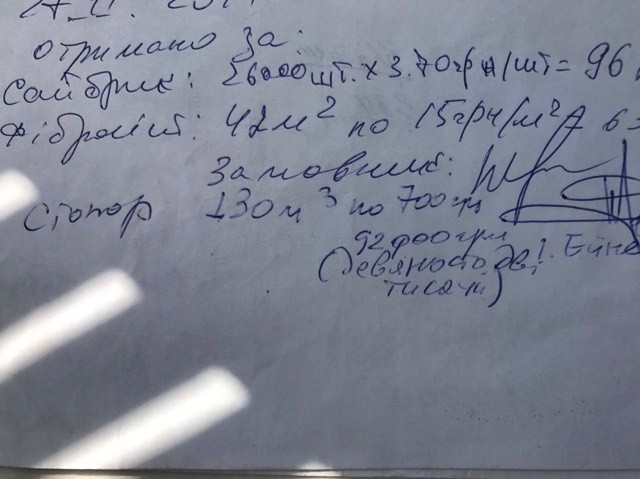 отримано за:
Сайбрик: 26000шт. х 3.70грн/шт = 96
Фіброліт: 42м² по 15грн/м²
Замовник:
Столяр 130м³ по 700грн
92000грн
(Девяносто дві
тисячі)